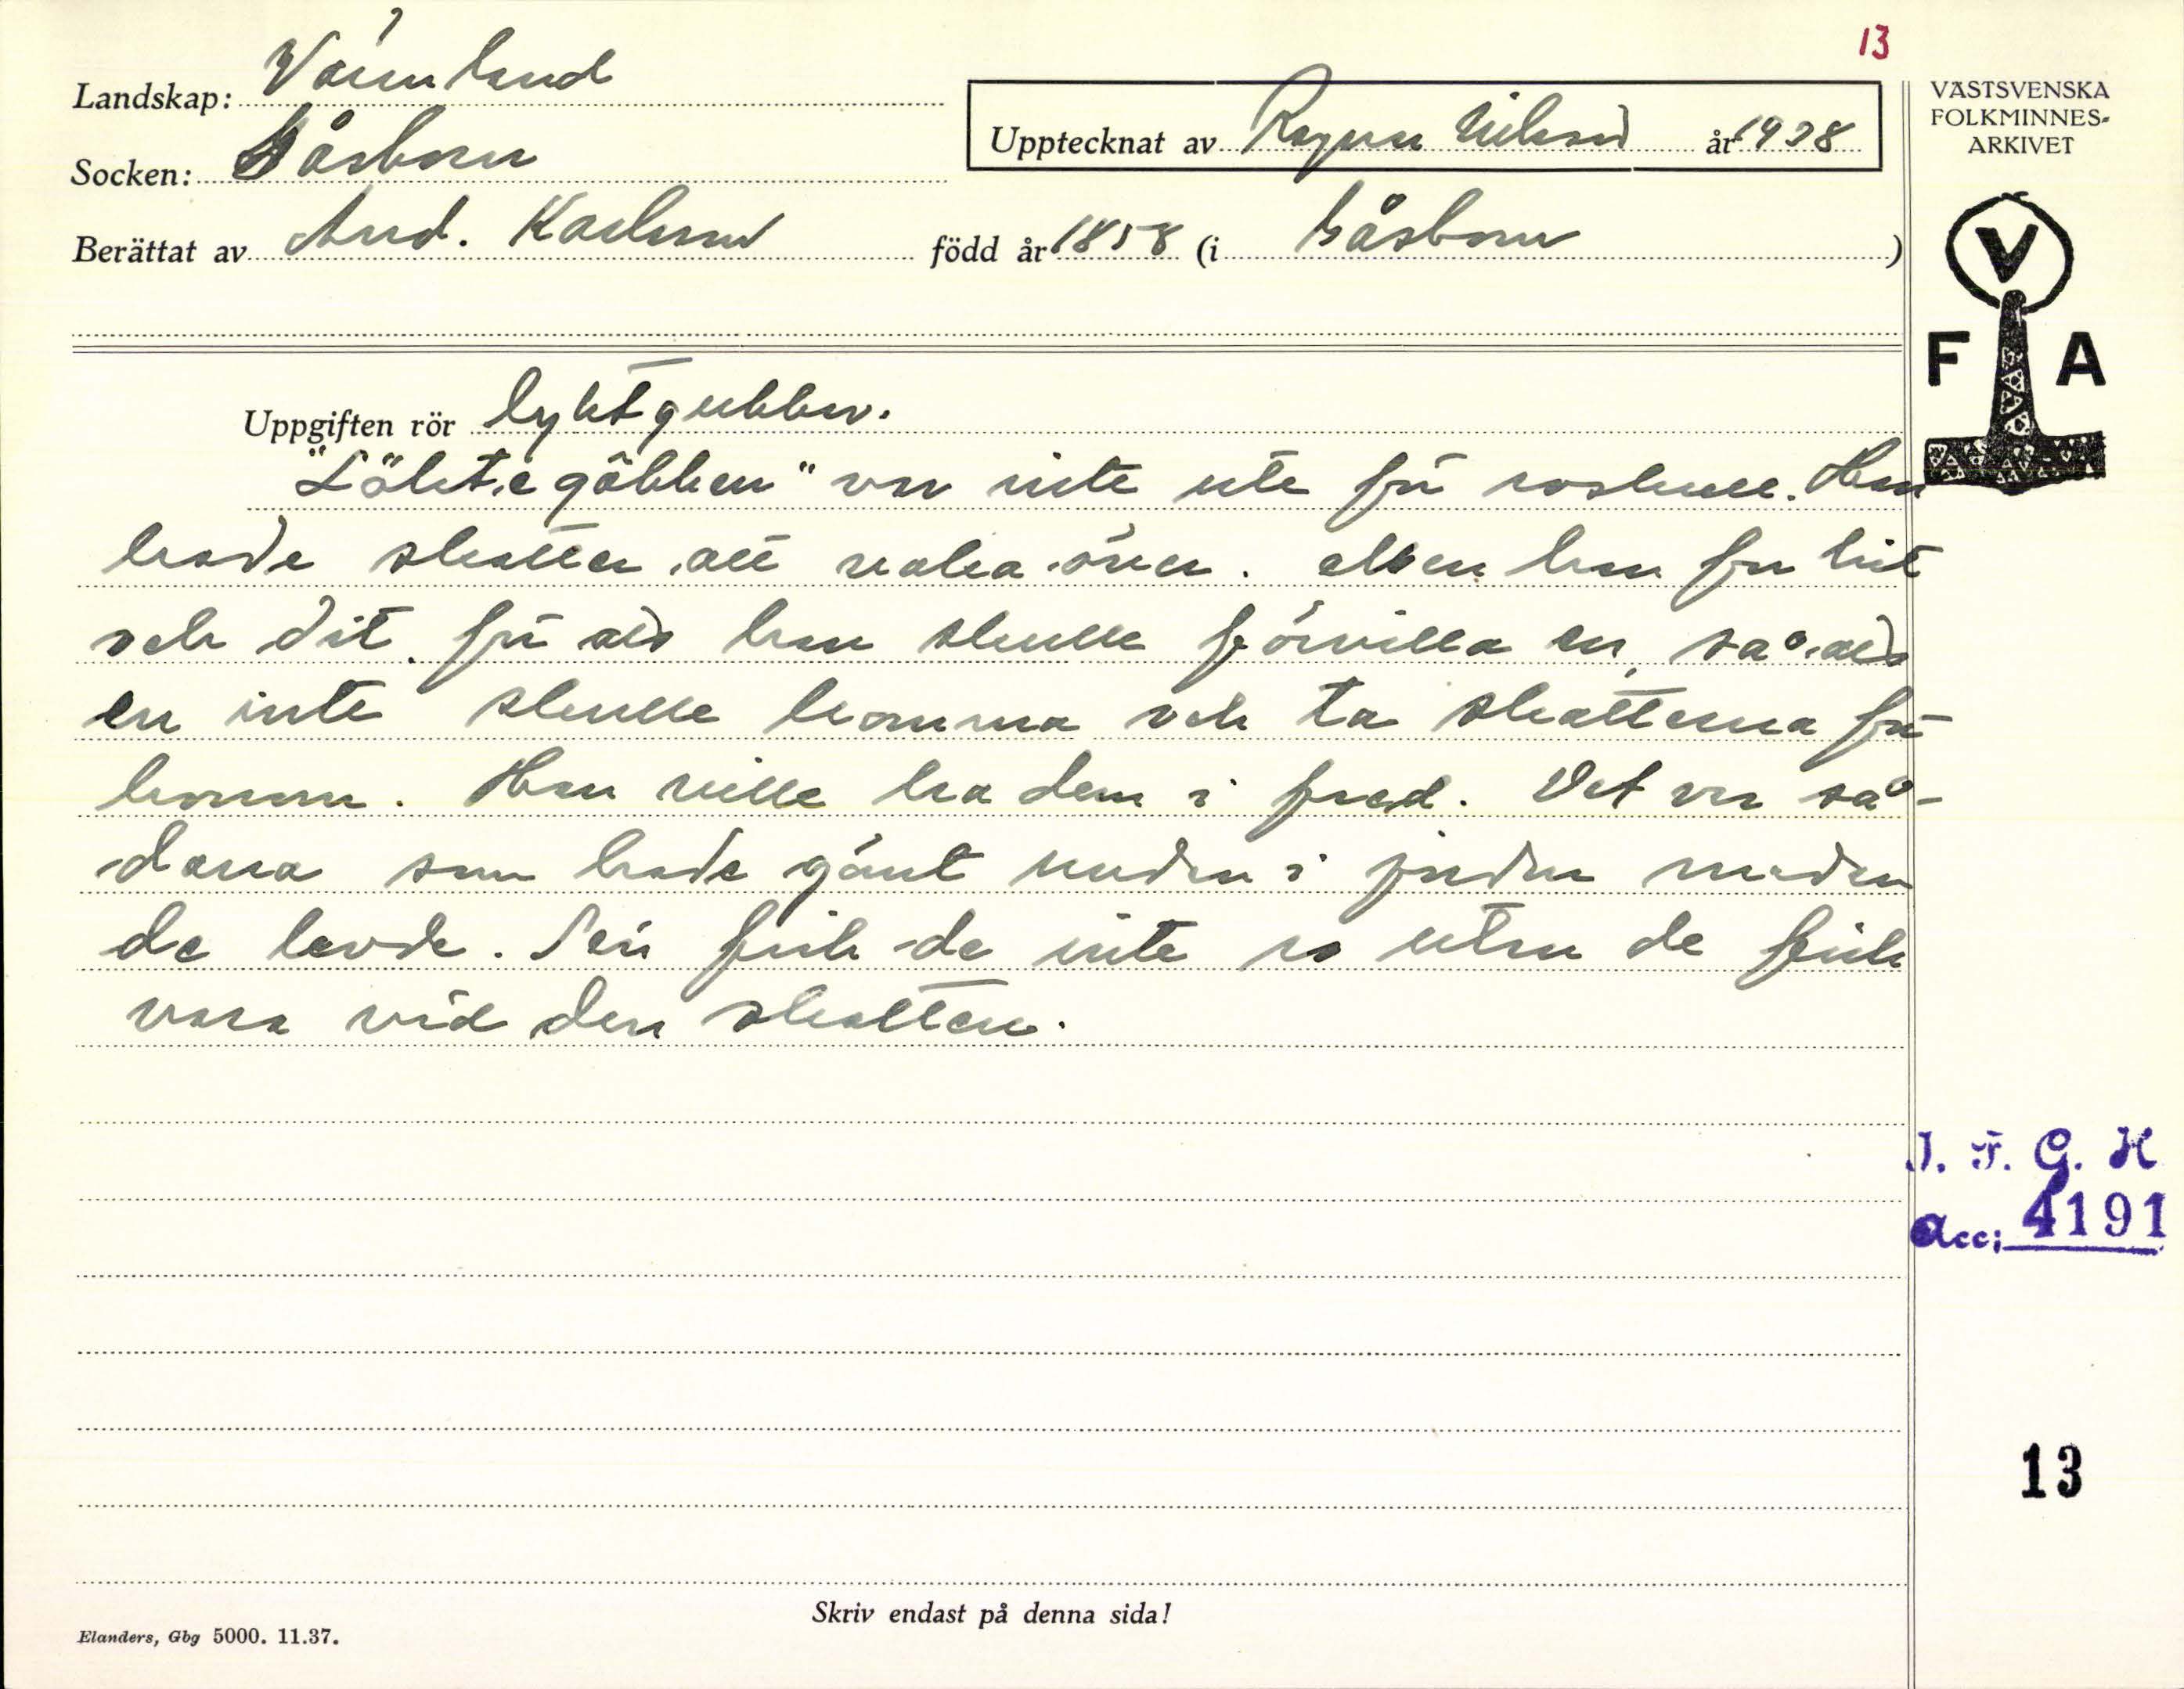 13
Landskap: Värmland
Socken: Gåsborn
Upptecknat av Ragnar Nilsson år 1938
Berättat av And. Karlsson född år 1858 (i Gåsborn)
VÄSTSVENSKA
FOLKMINNES-
ARKIVET
V
F A
Uppgiften rör lyktgubben.
"Löktegöbben" var inte ute för ro skull. Han
hade skatter att vaka över. Men han for hit
och dit för att han skulle förvilla en, så att
en inte skulle komma och ta skatterna frå
honom. Han ville ha dem i fred. Det var så-
dana som hade gömt undan i jorden medan
de levde. Sen fick de inte ro utan de fick
vara vid den skatten.
I. F. G. H
Acc; 4191
13
Skriv endast på denna sida!
Elanders, Gbg 5000. 11.37.